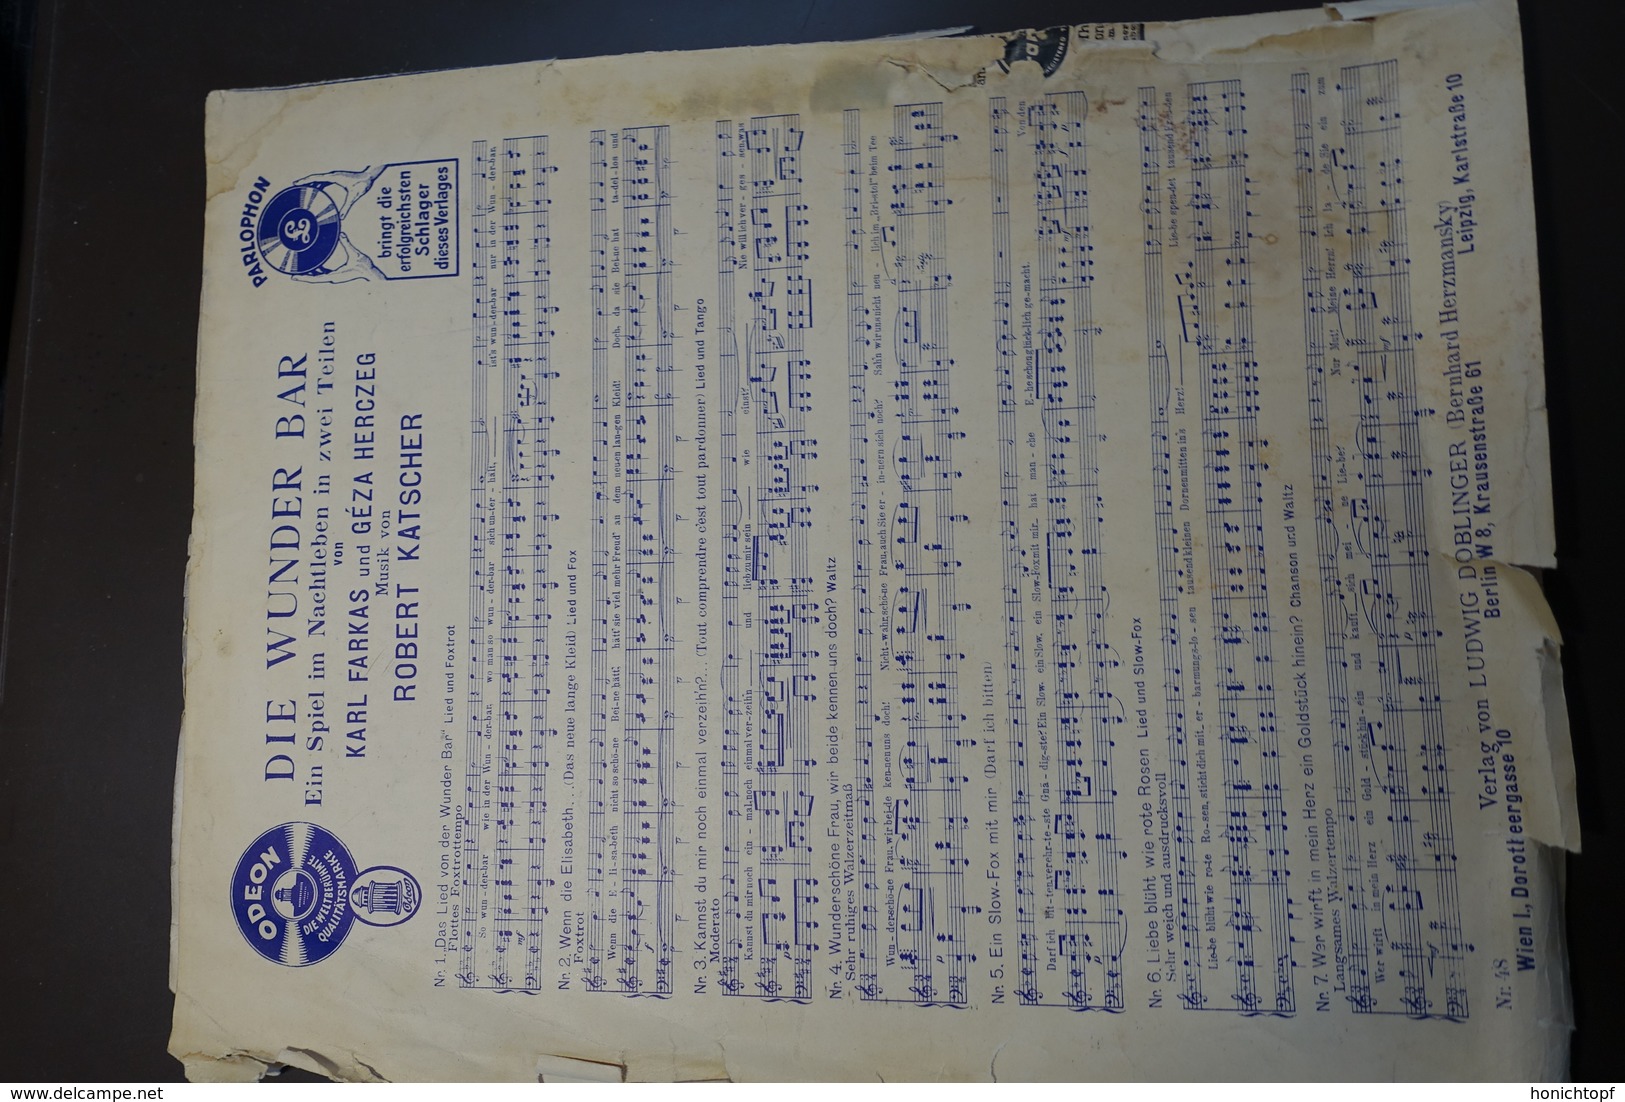 ODEON
DIE WELTBERÜHMTE
QUALITÄTSMARKE
Odeon
DIE WUNDER BAR
Ein Spiel im Nachtleben in zwei Teilen
von
KARL FARKAS und GÉZA HERCZEG
Musik von
ROBERT KATSCHER
PARLOPHON
bringt die
erfolgreichsten
Schlager
dieses Verlages
Nr. 1. „Das Lied von der Wunder Bar" Lied und Foxtrot
Flottes Foxtrottempo
So wun - der-bar wie in der Wun - der-bar, wo man so wun - der-bar sich un-ter - hält, ist's wun-der-bar nur in der Wun - der-bar.
Nr. 2. Wenn die Elisabeth... (Das neue lange Kleid) Lied und Fox
Foxtrot
Wenn die E - li-sa-beth nicht so schö-ne Bei-ne hätt', hätt' sie viel mehr Freud' an dem neuen lan-gen Kleid! Doch, da sie Bei-ne hat ta-del-los und
Nr. 3. Kannst du mir noch einmal verzeih'n?... (Tout comprendre c'est tout pardonner) Lied und Tango
Moderato
Kannst du mir noch ein - mal, noch einmal ver-zeih'n und lieb zu mir sein wie einst? Nie will ich ver - ges - sen, was
Nr. 4. Wunderschöne Frau, wir beide kennen uns doch? Waltz
Sehr ruhiges Walzerzeitmaß
Wun - der-schö-ne Frau, wir bei-de ken-nen uns doch! Nicht wahr, schö-ne Frau, auch Sie er - in-nern sich noch? Sah'n wir uns nicht neu - lich im „Bri-stol" beim Tee
Nr. 5. Ein Slow-Fox mit mir (Darf ich bitten)
Darf ich bit-ten, ver-ehr-te-ste Gnä - dig-ste? Ein Slow, ein Slow, ein Slow-Fox mit mir, hat man - che E-he schon glück-lich ge-macht. Von den
Nr. 6. Liebe blüht wie rote Rosen Lied und Slow-Fox
Sehr weich und ausdrucksvoll
Lie-be blüht wie ro-te Ro-sen, sticht dich mit er - barmungs-lo - sen tausend kleinen Dornen mitten in's Herz! Lie-be spen-det tausend
Nr. 7. Wer wirft in mein Herz ein Goldstück hinein? Chanson und Waltz
Langsames Walzertempo
Wer wirft in mein Herz ein Gold - stück hin-ein und kauft sich mei - ne Lie-be? Nur Mut! Meine Herrn! Ich la - de Sie ein zum
Nr. 48
Verlag von LUDWIG DOBLINGER (Bernhard Herzmansky)
Wien I., Dorotheergasse 10
Berlin W 8, Krausenstraße 61
Leipzig, Karlstraße 10
© delcampe.net
honichtopf